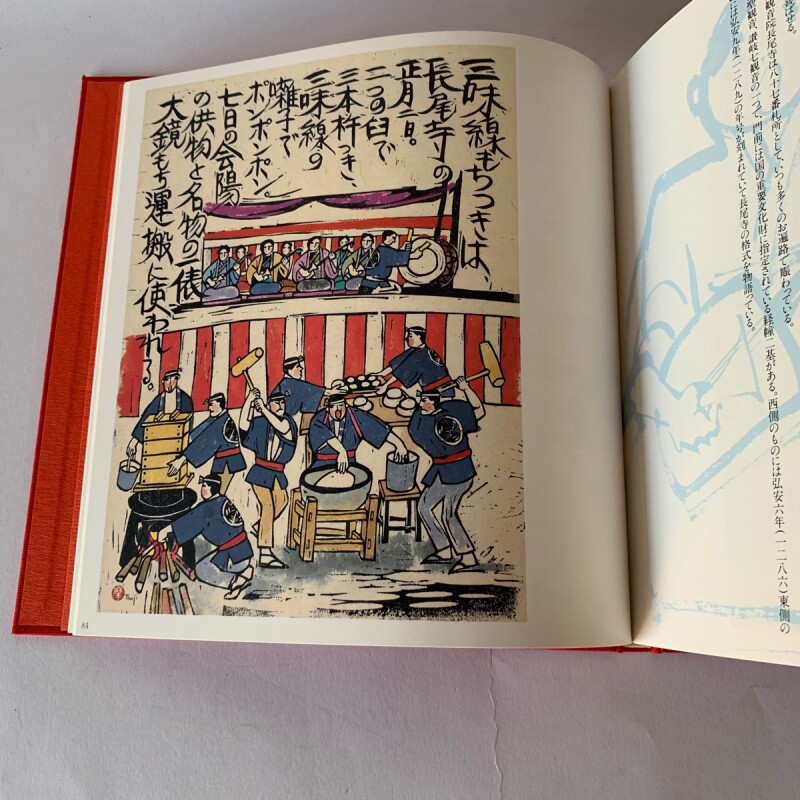 ばせる。
観音院長尾寺は八十七番札所として、いつも多くのお遍路で賑わっている。
聖観音、讃岐七観音の一つで、門前には国の重要文化財に指定されている経幢二基がある。西側のものには弘安六年(一二八六)東側の
には弘安九年(一二八九)の年号が刻まれていて長尾寺の格式を物語っている。
三味線もちつきは、
長尾寺の
正月二日。
二つの臼で
三本杵つき、
三味線の
囃子で
ポンポンポン。
七日の会陽
の供物と名物の俵
大鏡もち運搬に使われる。
Tsuji
84